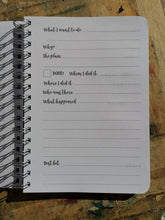 What I want to do
Why?
The plan
DONE! When I did it
Where I did it
Who was there
What happened
Best bit